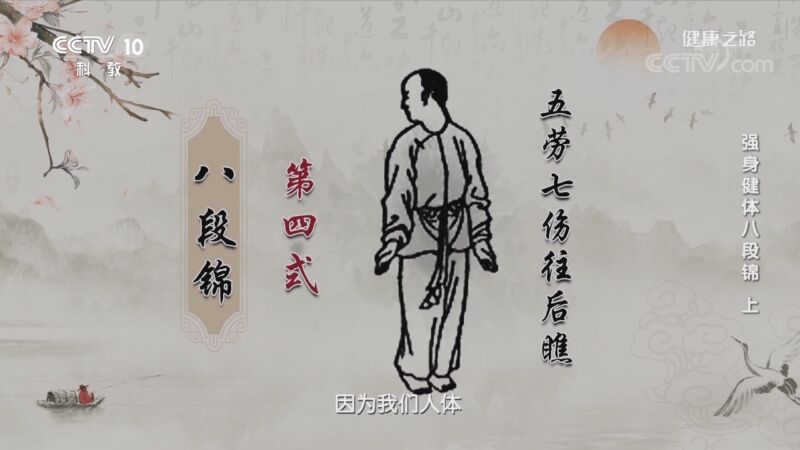 CCTV 10
科教
健康之路
CCTV.com
八段锦
第四式
五劳七伤往后瞧
强身健体八段锦 上
因为我们人体